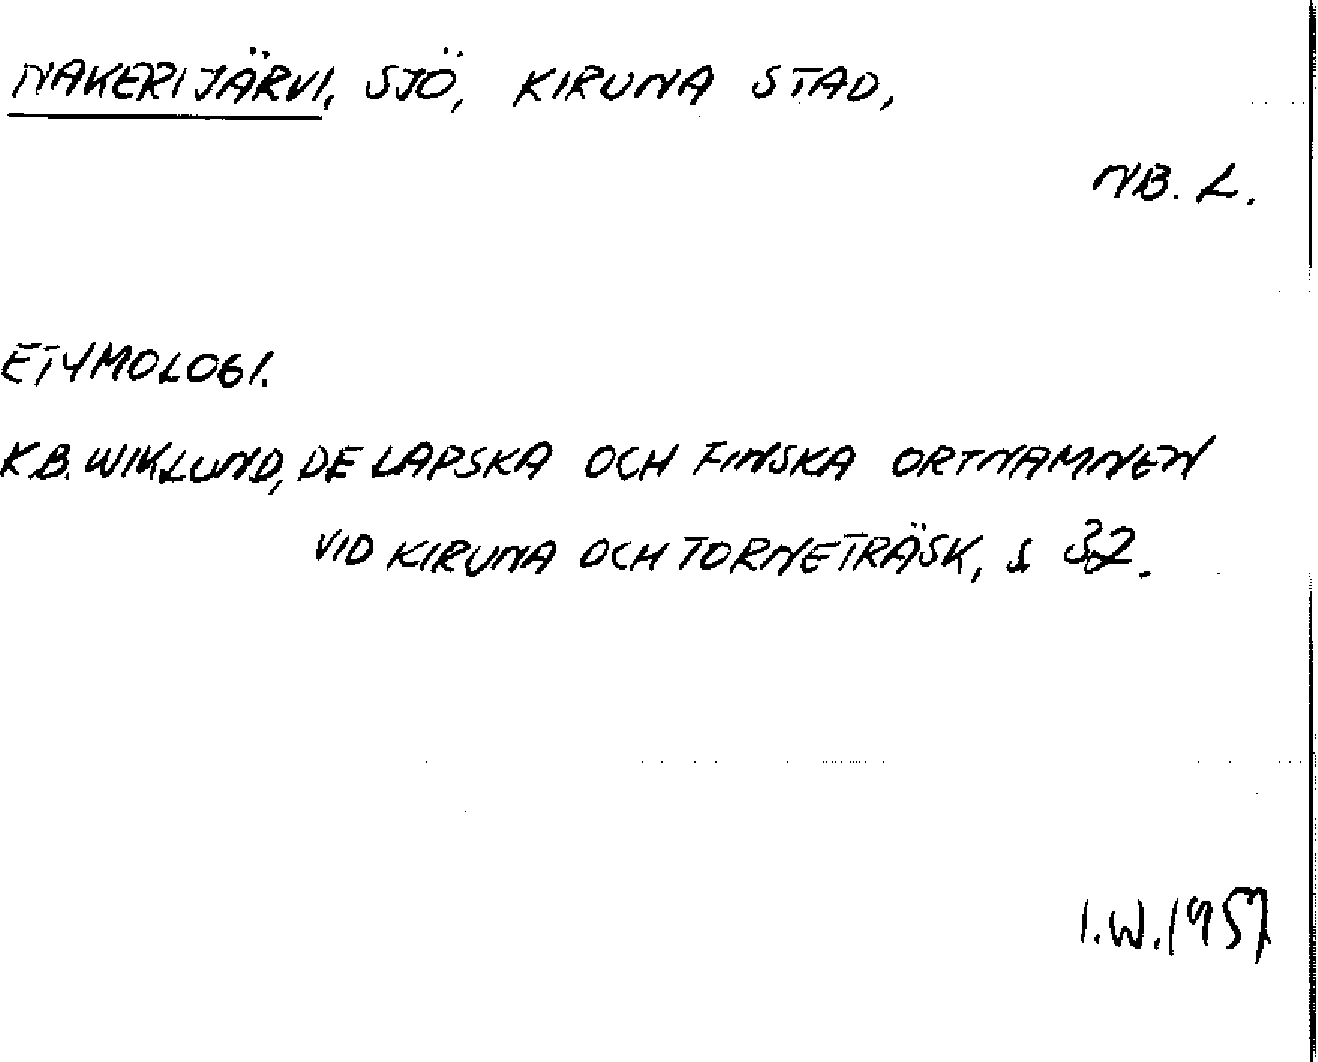 NAKERIJÄRVI, SJÖ, KIRUNA STAD,
NB. L.
ETYMOLOGI.
K.B. WIKLUND, DE LAPSKA OCH FINSKA ORTNAMNEN
VID KIRUNA OCH TORNETRÄSK, S 32.
I.W. 1957